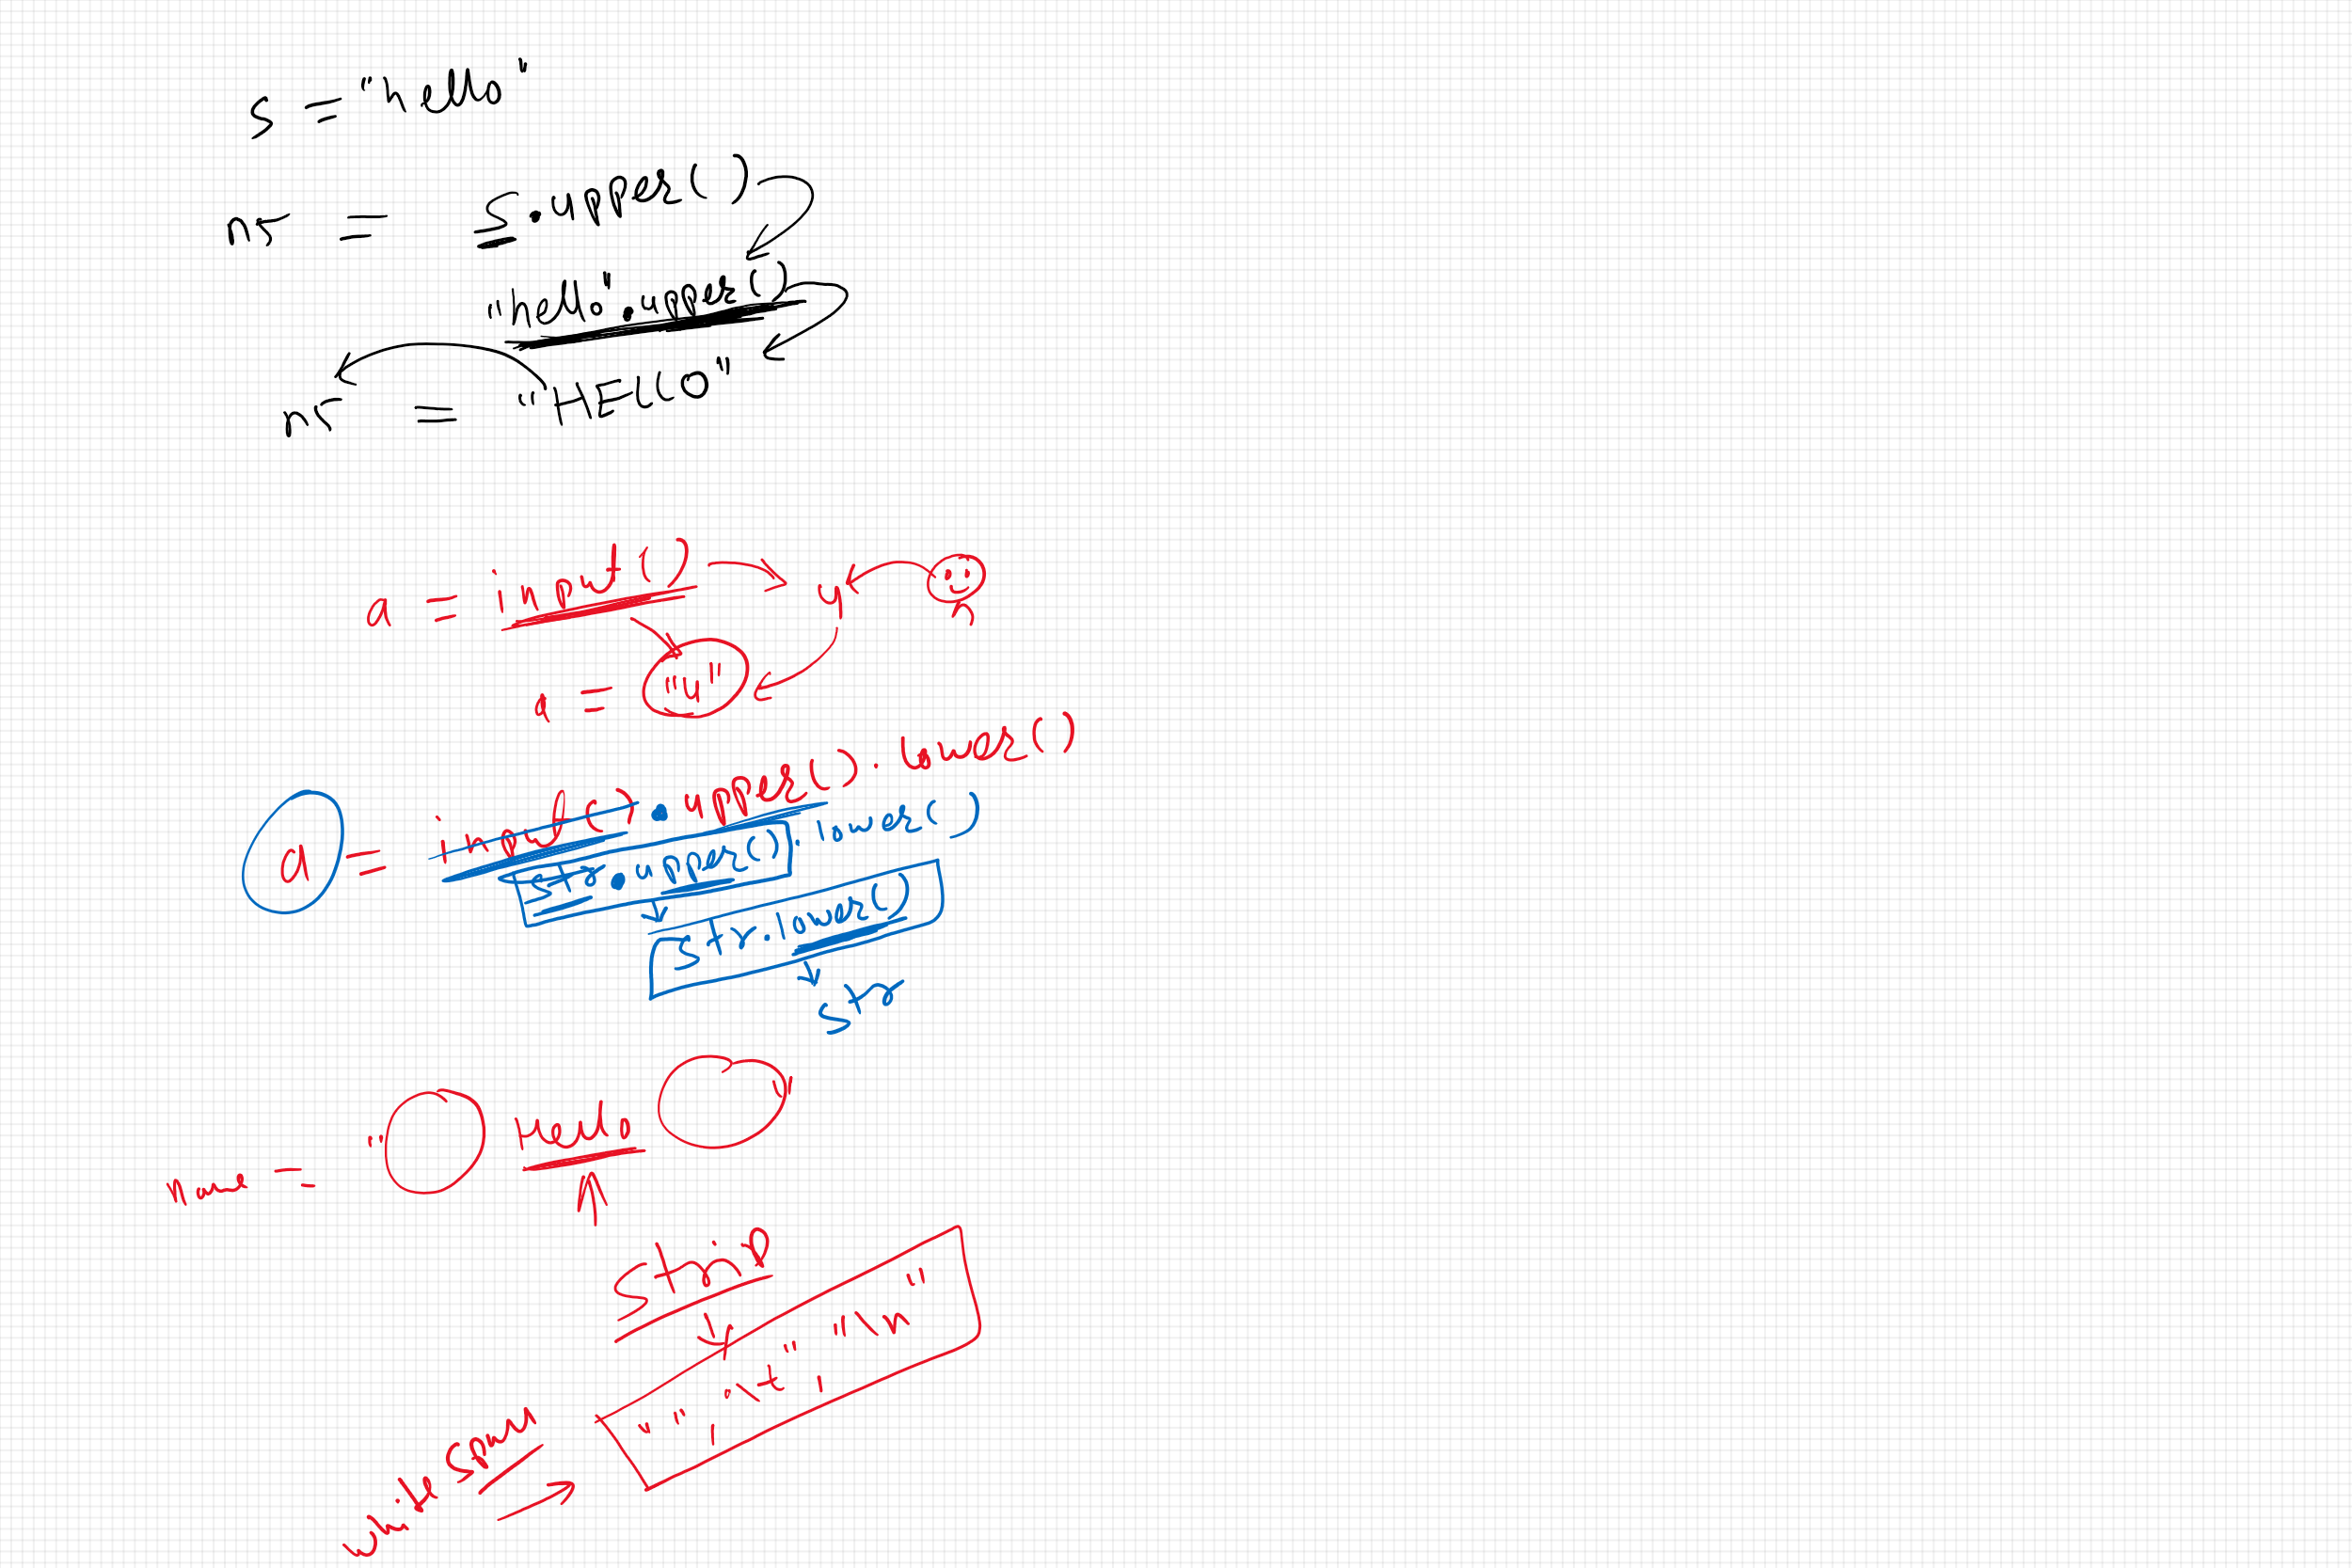 s = "hello"
ns = s.upper()
"hello".upper()
ns = "HELLO"
a = input() 4
a = "4"
a = input().upper().lower()
str.upper().lower()
str.lower()
str
name = " Hello "
Strip
" ", "\t", "\n"
white spaces